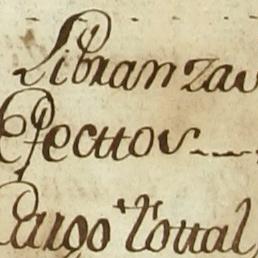 Libranzas
Efecttos
Cargo tottal